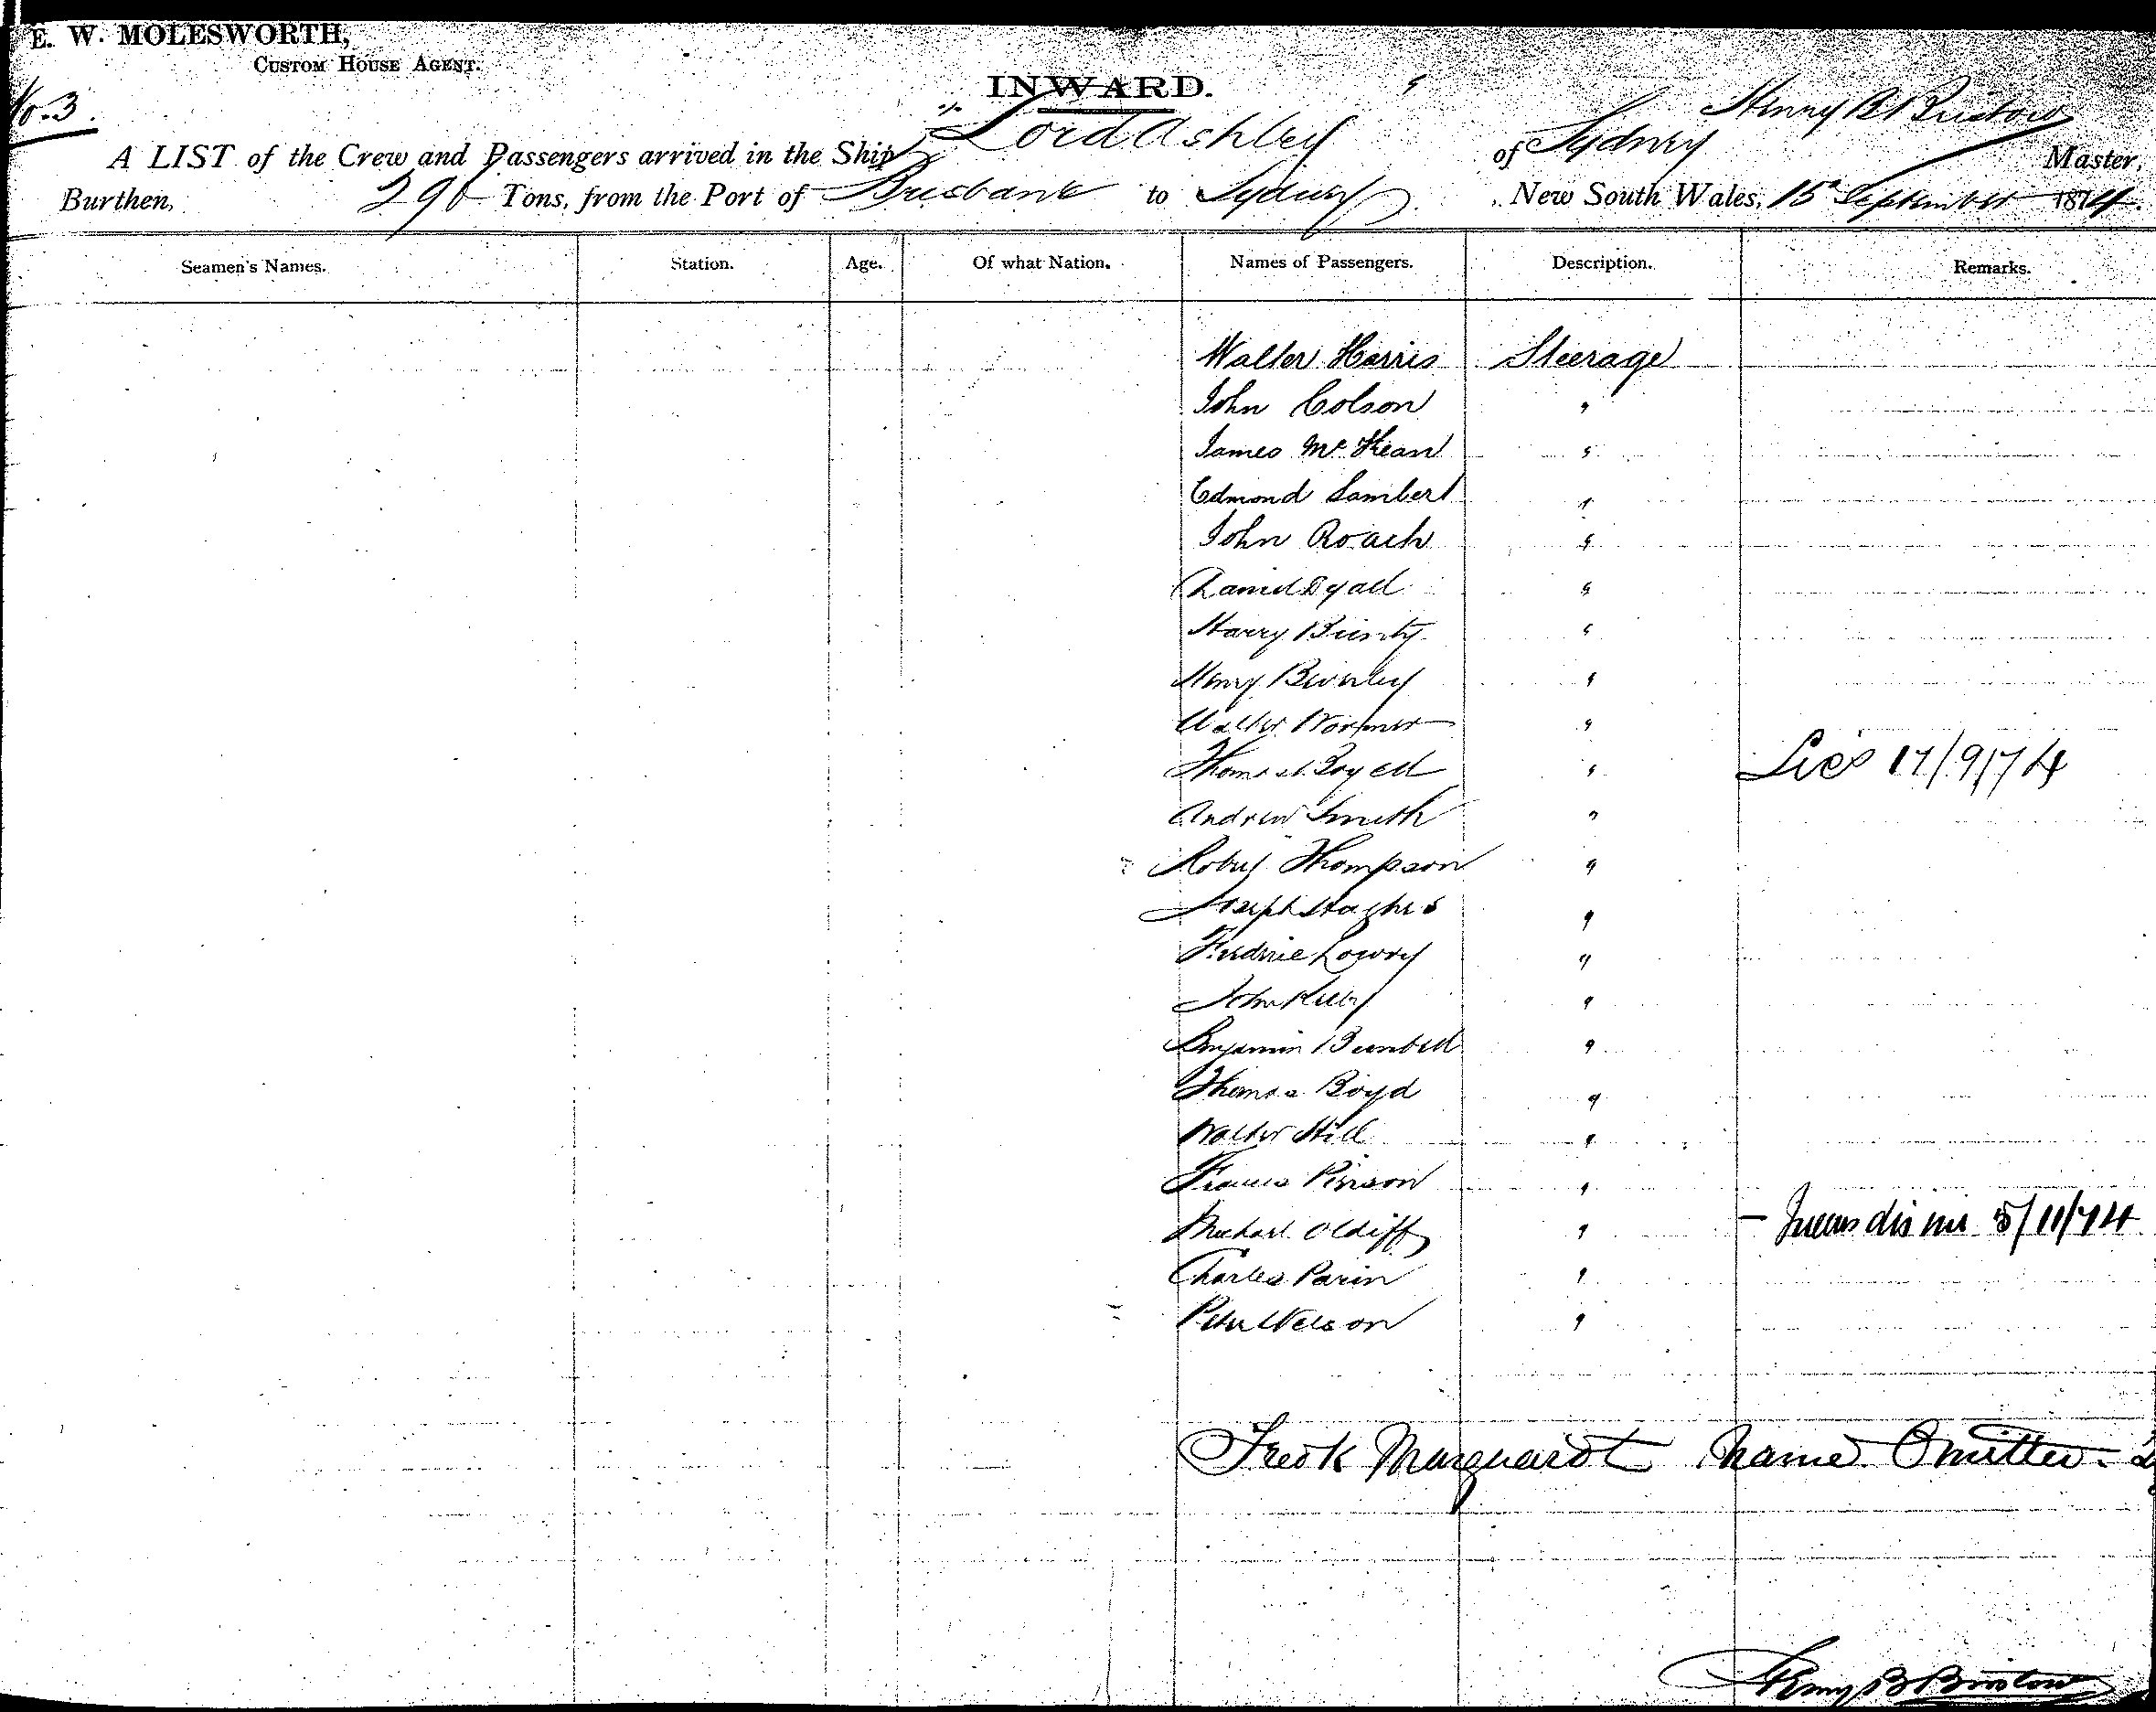 E. W. MOLESWORTH,
CUSTOM HOUSE AGENT.
No. 3.
INWARD.
A LIST of the Crew and Passengers arrived in the Ship Lord Ashley of Sydney Henry B Bristow Master,
Burthen, 296 Tons, from the Port of Brisbane to Sydney New South Wales, 15 September 1874.
Seamen's Names. Station. Age. Of what Nation. Names of Passengers. Description. Remarks.
Walter Harris Steerage
John Colson "
James McKean "
Edmond Lambert "
John Roach "
Daniel "
Harry "
Henry "
Walter "
Thomas "
Lies 17/9/74
Andrew Smith "
Robert Thompson "
Joseph Hughes "
Lowry "
John "
Benjamin "
Thomas Boyd "
Walter Hill "
Francis Pinson "
Michael Oldiff " - 5/11/74
Charles Parin "
Peter Nelson "
Fredk Marquardt Name Omitted -
Henry B Bristow